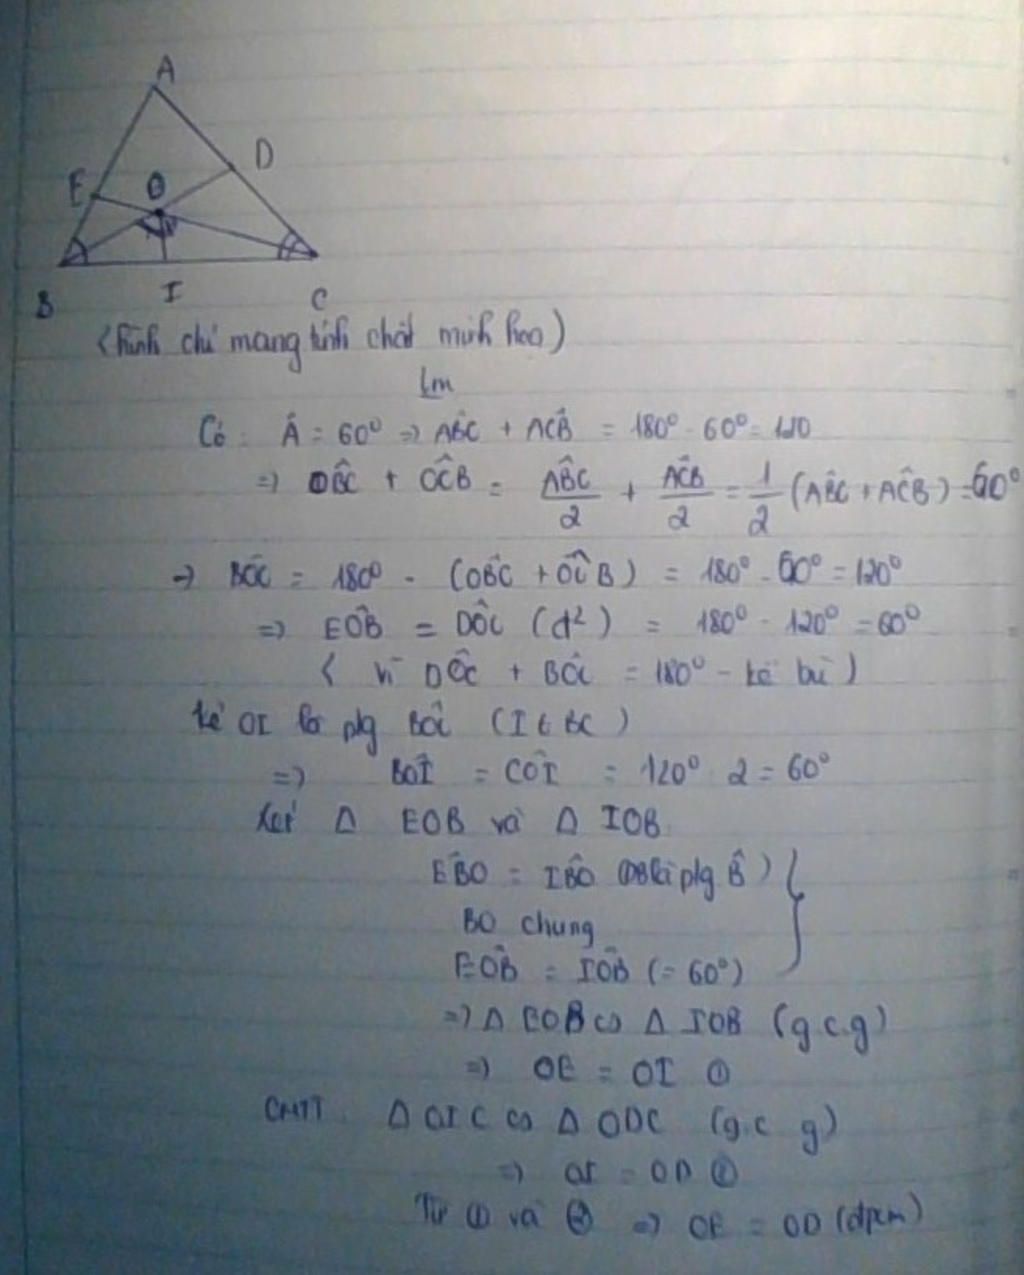 A
D
E
O
B
I
C
(hình chỉ mang tính chất minh họa)
Lm
Có: Â = 60° => AB̂C + AĈB = 180° - 60° = 120
=> OB̂C + OĈB = AB̂C/2 + AĈB/2 = 1/2 (AB̂C + AĈB) = 60°
=> BÔC = 180° - (OB̂C + OĈB) = 180° - 60° = 120°
=> EÔB = DÔC (đ²) = 180° - 120° = 60°
( vì DÔC + BÔC = 180° - kề bù )
kẻ OI là pg BÔC (I ∈ BC)
=> BÔI = CÔI = 120° : 2 = 60°
Xét Δ EOB và Δ IOB
EB̂O = IB̂O (OB là pg B̂ )
BO chung
EÔB = IÔB (= 60°)
=> Δ EOB ∽ Δ IOB (g c.g)
=> OE = OI ①
CMTT Δ OIC ∽ Δ ODC (g.c g)
=> OI = OD ②
Từ ① và ② => OE = OD (đpcm)